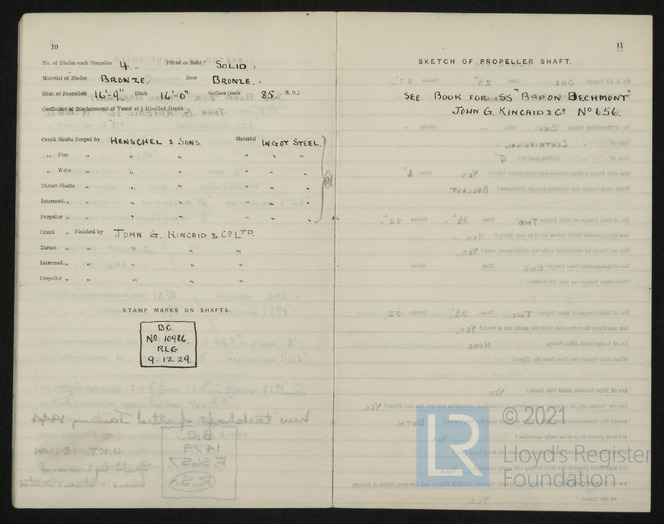 10
No. of Blades each Propeller 4 Fitted or Solid? SOLID.
Material of Blades BRONZE. Boss BRONZE.
Diar. of Propellers 16'-9" Pitch 16'-0" Surface (each 85. S. ft.)
Coefficient of Displacement of Vessel at Moulded Depth
Crank Shafts Forged by HENSCHEL & SONS. Material INGOT STEEL.
„ Pins „ „ „ „ „
„ Webs „ „ „ „ „
Thrust Shafts „ „ „ „ „
Intermed. „ „ „ „ „ „
Propeller „ „ „ „ „ „
Crank „ Finished by JOHN G. KINCAID & CO LTD.
Thrust „ „ „ „
Intermed. „ „ „ „
Propeller „ „ „ „
STAMP MARKS ON SHAFTS.
B.C.
No. 10986
RLG
9.12.29.
11
SKETCH OF PROPELLER SHAFT.
SEE BOOK FOR SS "BARON DECHMONT"
JOHN G. KINCAID & Co No 656.
LR
© 2021
Lloyd's Register
Foundation